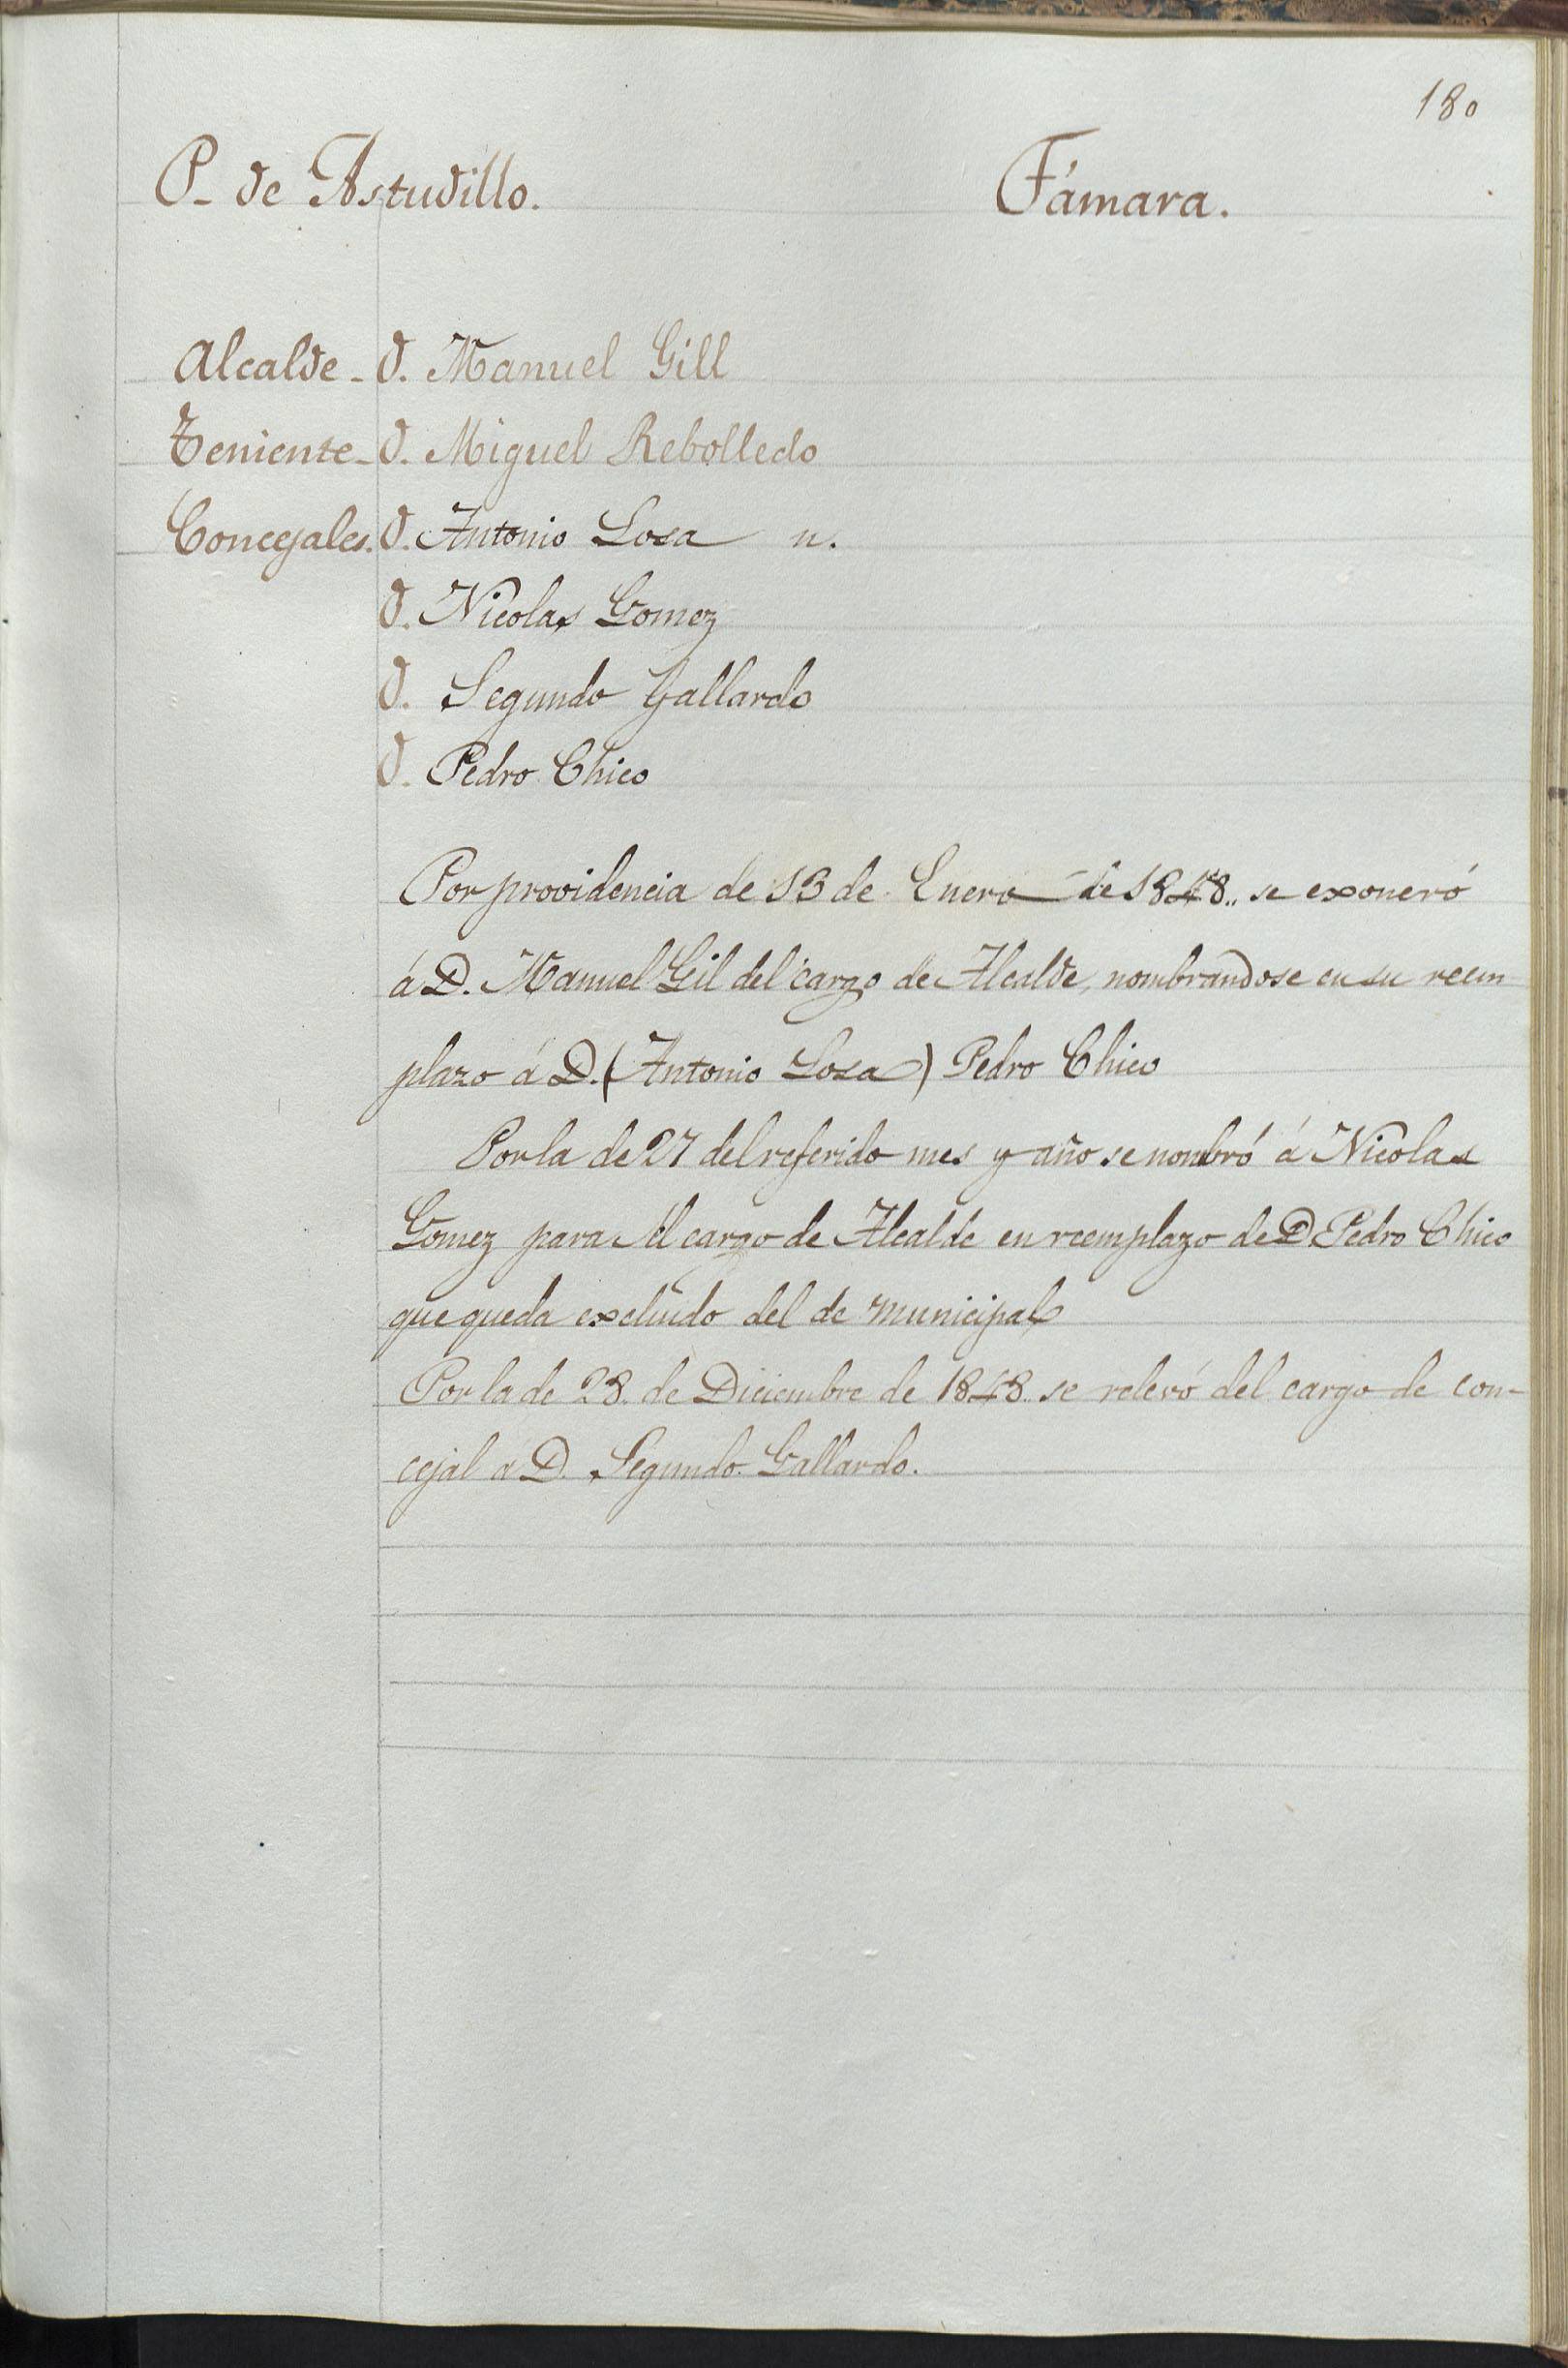 180
P. de Astudillo. Támara.
Alcalde - D. Manuel Gill
Teniente - D. Miguel Rebolledo
Concejales. D. Antonio Losa n.
D. Nicolas Gomez
D. Segundo Gallardo
D. Pedro Chico
Por providencia de 13 de Enero de 1848.. se exoneró
á D. Manuel Gil del cargo de Alcalde, nombrandose en su reem
plazo á D. (Antonio Losa) Pedro Chico
Por la de 27 del referido mes y año se nombró á Nicolas
Gomez para el cargo de Alcalde en reemplazo de D. Pedro Chico
que queda excluido del de municipal
Por la de 28. de Diciembre de 1848.. se relevó del cargo de con-
cejal a D. Segundo Gallardo.